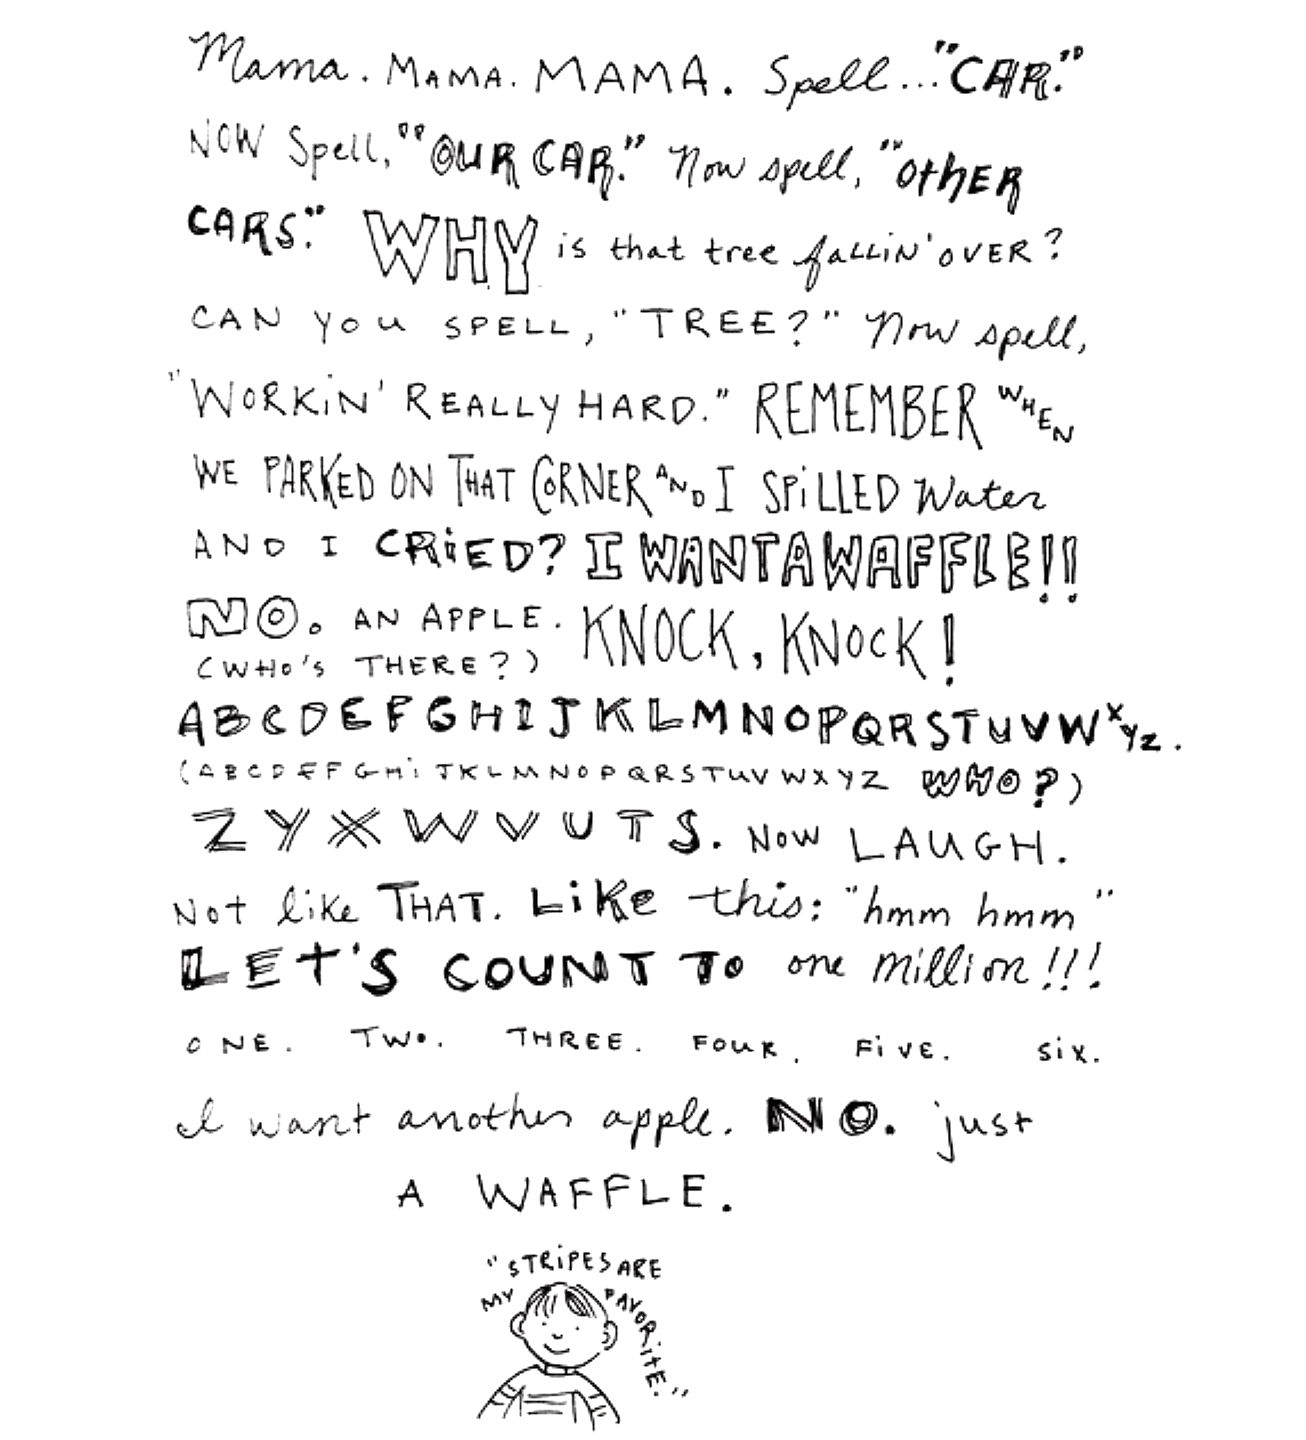 Mama. MAMA. MAMA. Spell..."CAR."
NOW Spell, "OUR CAR." Now spell, "OtHER
CARS." WHY is that tree fALLiN' OVER?
CAN YOU SPELL, "TREE?" Now spell,
"WORKiN' REALLY HARD." REMEMBER WHEN
WE PARKED ON THAT CORNER AND I SPiLLED Water
AND I CRiED? I WANT A WAFFLE!!
NO. AN APPLE. KNOCK, KNOCK!
(WHO'S THERE?)
ABCDEFGHIJKLMNOPQRSTUVWXYZ.
(ABCDEFGHiJKLMNOPQRSTUVWXYZ WHO?)
ZYXWVUTS. NOW LAUGH.
Not like THAT. LiKe this: "hmm hmm"
LET'S COUNT TO one million!!!
ONE. TWO. THREE. FOUR. FiVE. Six.
I want another apple. NO. just
A WAFFLE.
"STRiPES ARE
MY FAVORitE."